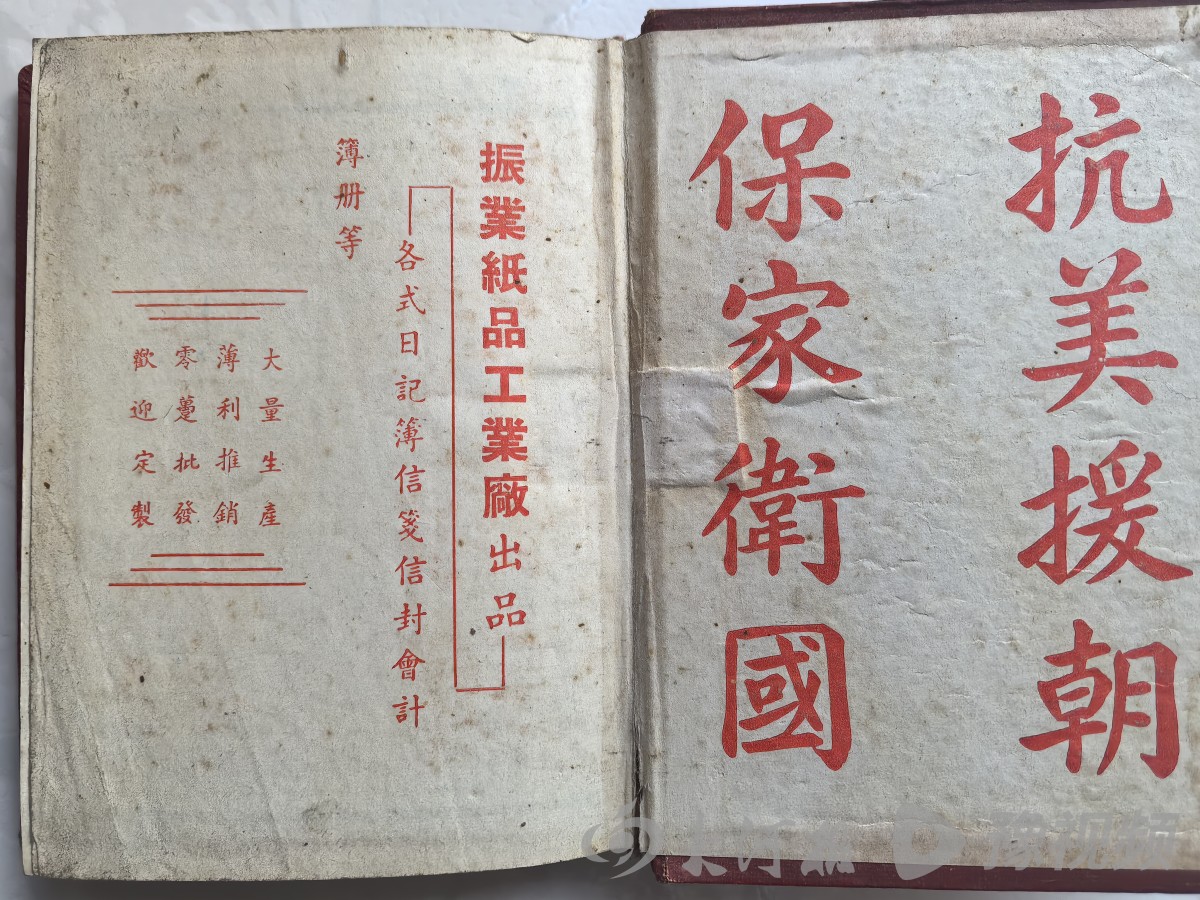 抗美援朝
保家衛國
振業紙品工業廠出品
各式日記簿信箋信封會計
簿册等
大量生產
薄利推銷
零躉批發
歡迎定製
大河网
豫视频